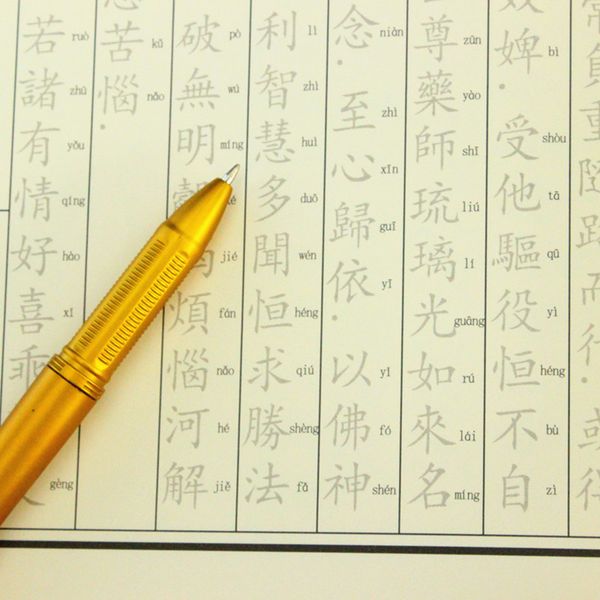 負重隨路而行。或
婢。受他驅役恒不自
bì shòu tā qū yì héng bù zì
尊藥師琉璃光如來名
zūn yào shī liú lí guāng rú lái míng
念。至心歸依。以佛神
niàn zhì xīn guī yī yǐ fó shén
利智慧多聞恒求勝法
lì zhì huì duō wén héng qiú shèng fǎ
破無明煩惱河解
pò wú míng jié fán nǎo hé jiě
苦惱。
kǔ nǎo
若諸有情好喜乖
ruò zhū yǒu qíng hào xǐ gèng